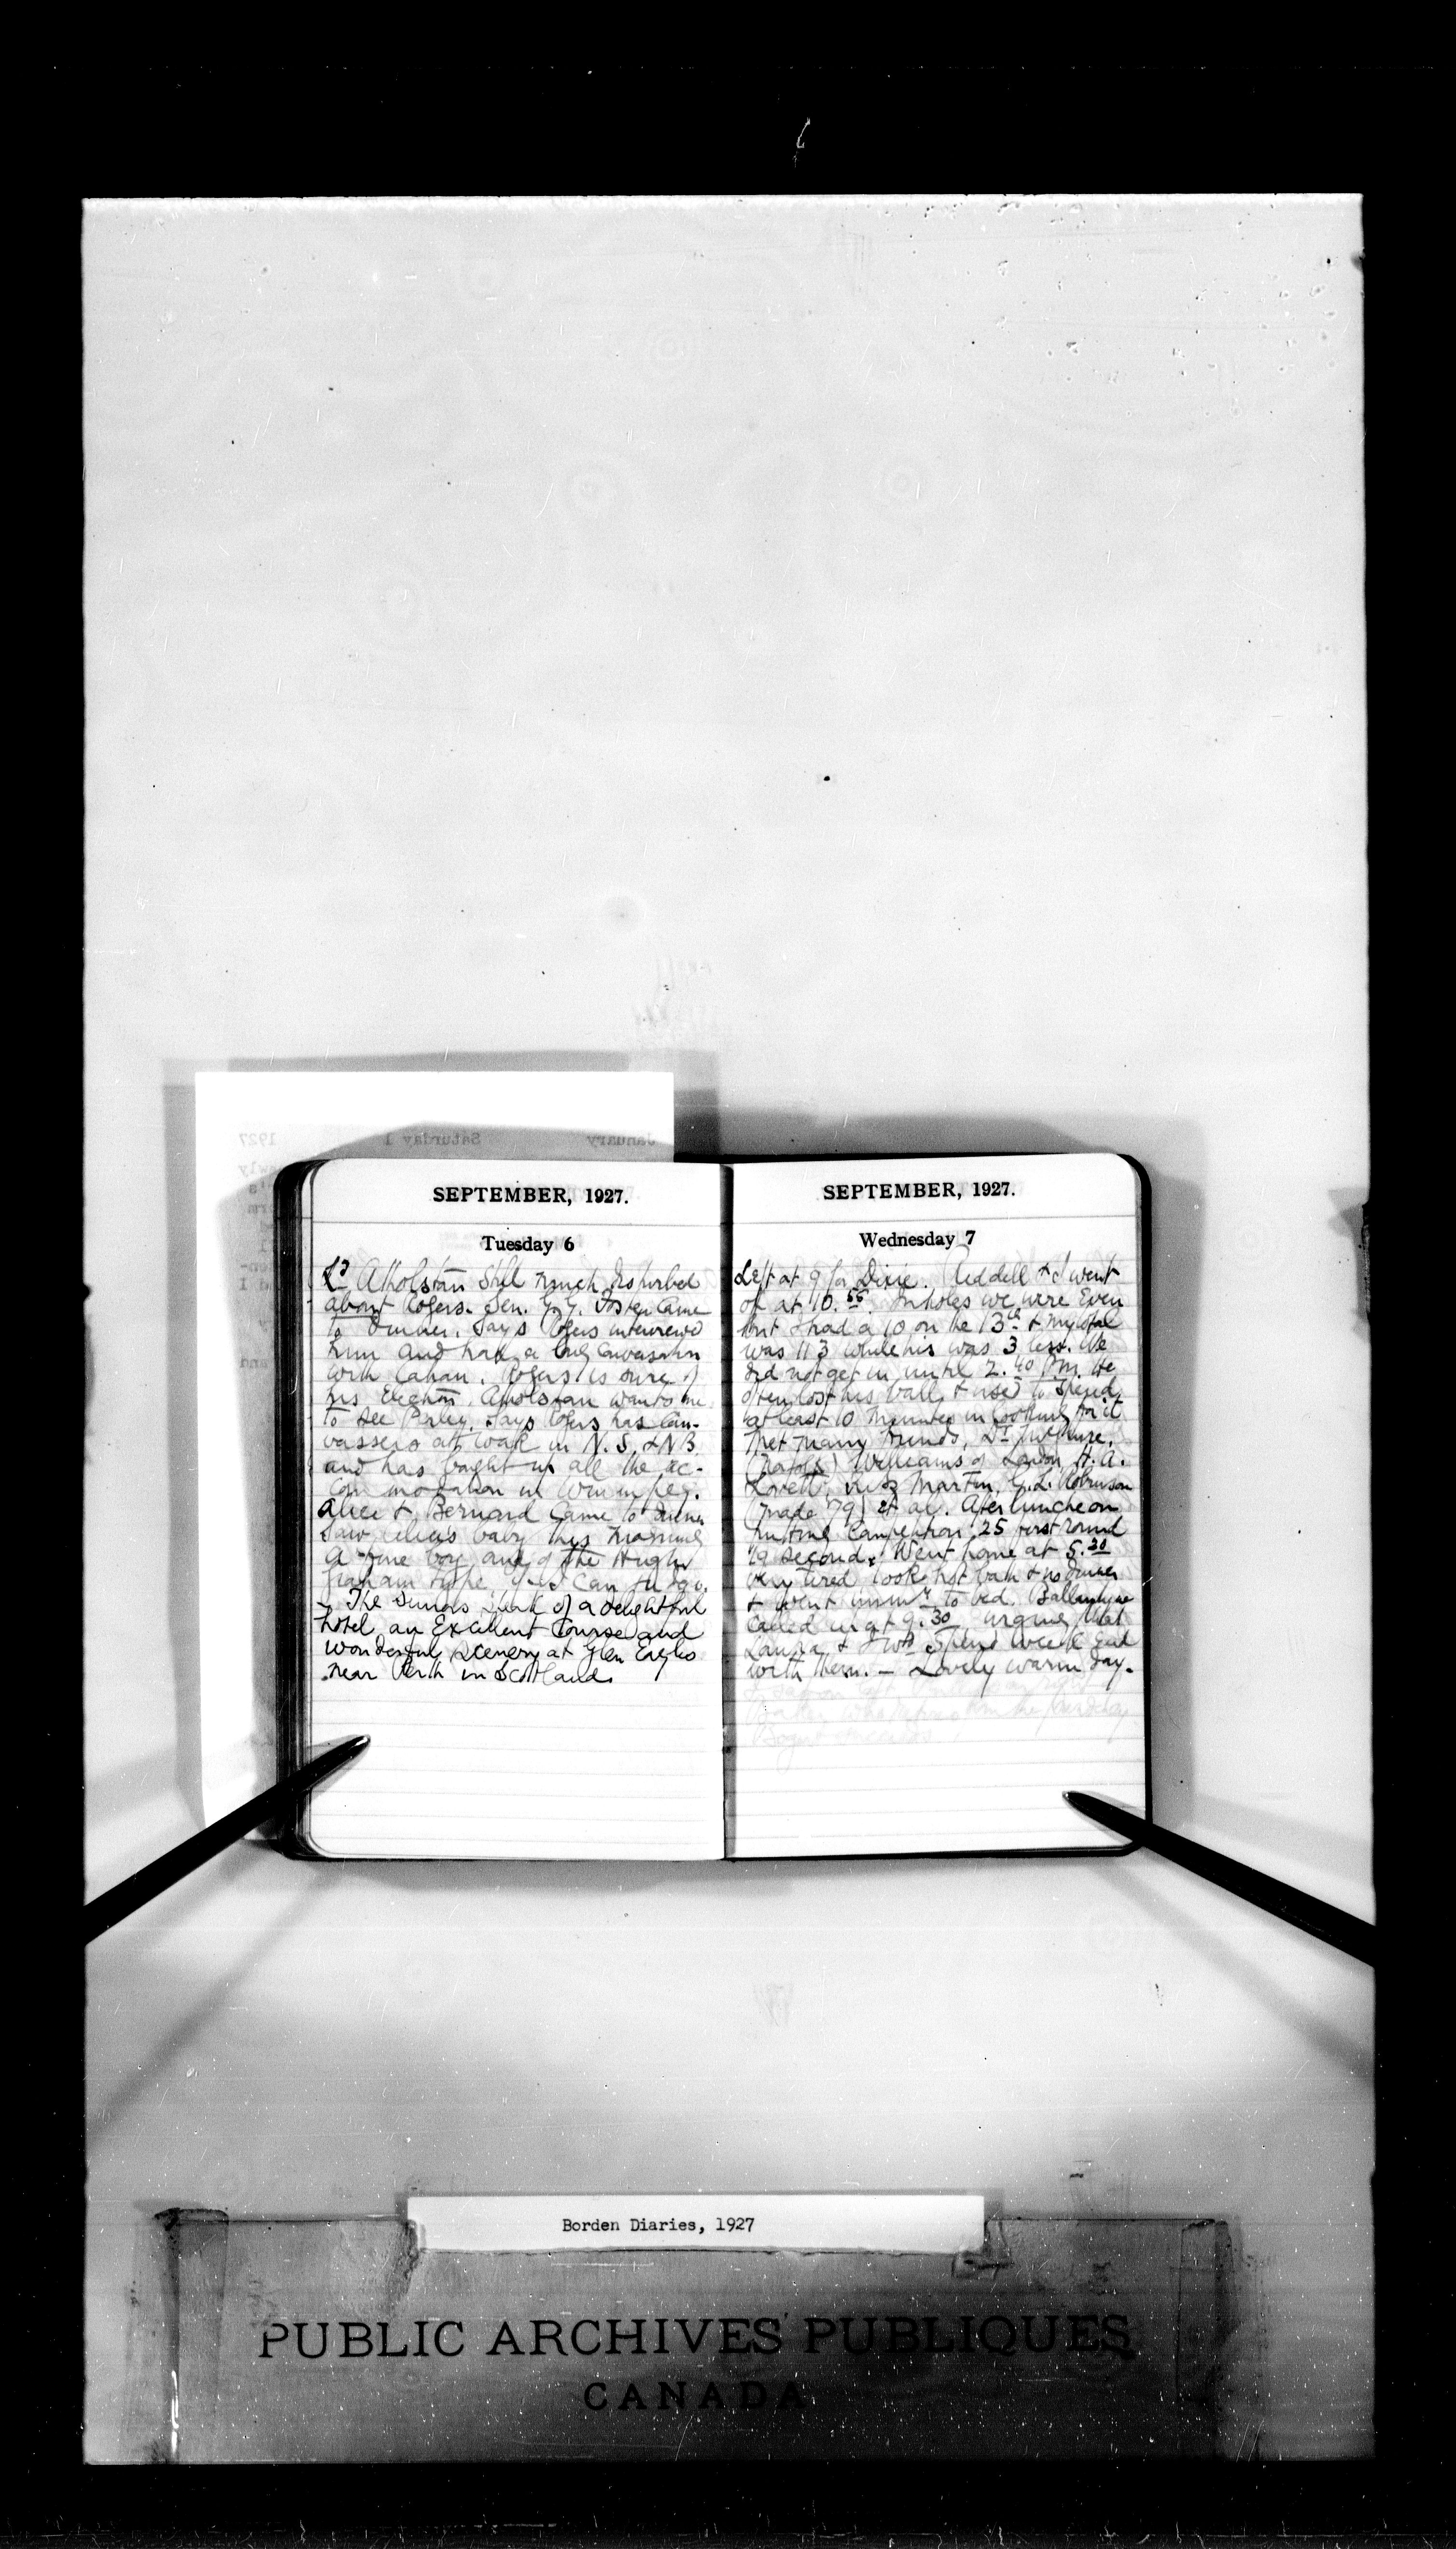 SEPTEMBER, 1927.
Tuesday 6
Ld Atholstan still much disturbed
about Rogers. Sen. G. G. Foster came
to dinner. Says Rogers interviewed
him and had a long conversation
with Cahan. Rogers is sure of
his election. Atholstan wants me
to see Perley. Says Rogers has can-
vassers at work in N.S. & N.B.
and has bought up all the ac-
commodation in Winnipeg.
Alice & Bernard came to dinner
Saw Alice's baby this morning
a fine boy and of the Hugh
Graham type.
The Dunns speak of a delightful
hotel an Excellent Course and
Wonderful scenery at Glen Eagles
near Perth in Scotland.
SEPTEMBER, 1927.
Wednesday 7
Left at 9 for Dixie. Liddell & I went
off at 10.55. In holes we were Even
but I had a 10 on the 13th & my total
was 113 while his was 3 less. We
did not get in until 2.40 P.M. He
often lost his ball & used to spend
at least 10 minutes in looking for it
Met many friends,
Williams of London H. A.
Lovett, Martin, G. L. Robinson
(made 79) et al. After luncheon
putting Competition 25 first round
19 second. Went home at 5.30
very tired took hot bath & no dinner
& went immy to bed. Ballantyne
called up at 9.30 urging that
Laura & I wd spend week End
with them. – Lovely warm day.
January
Saturday 1
1927
Borden Diaries, 1927
PUBLIC ARCHIVES PUBLIQUES
CANADA